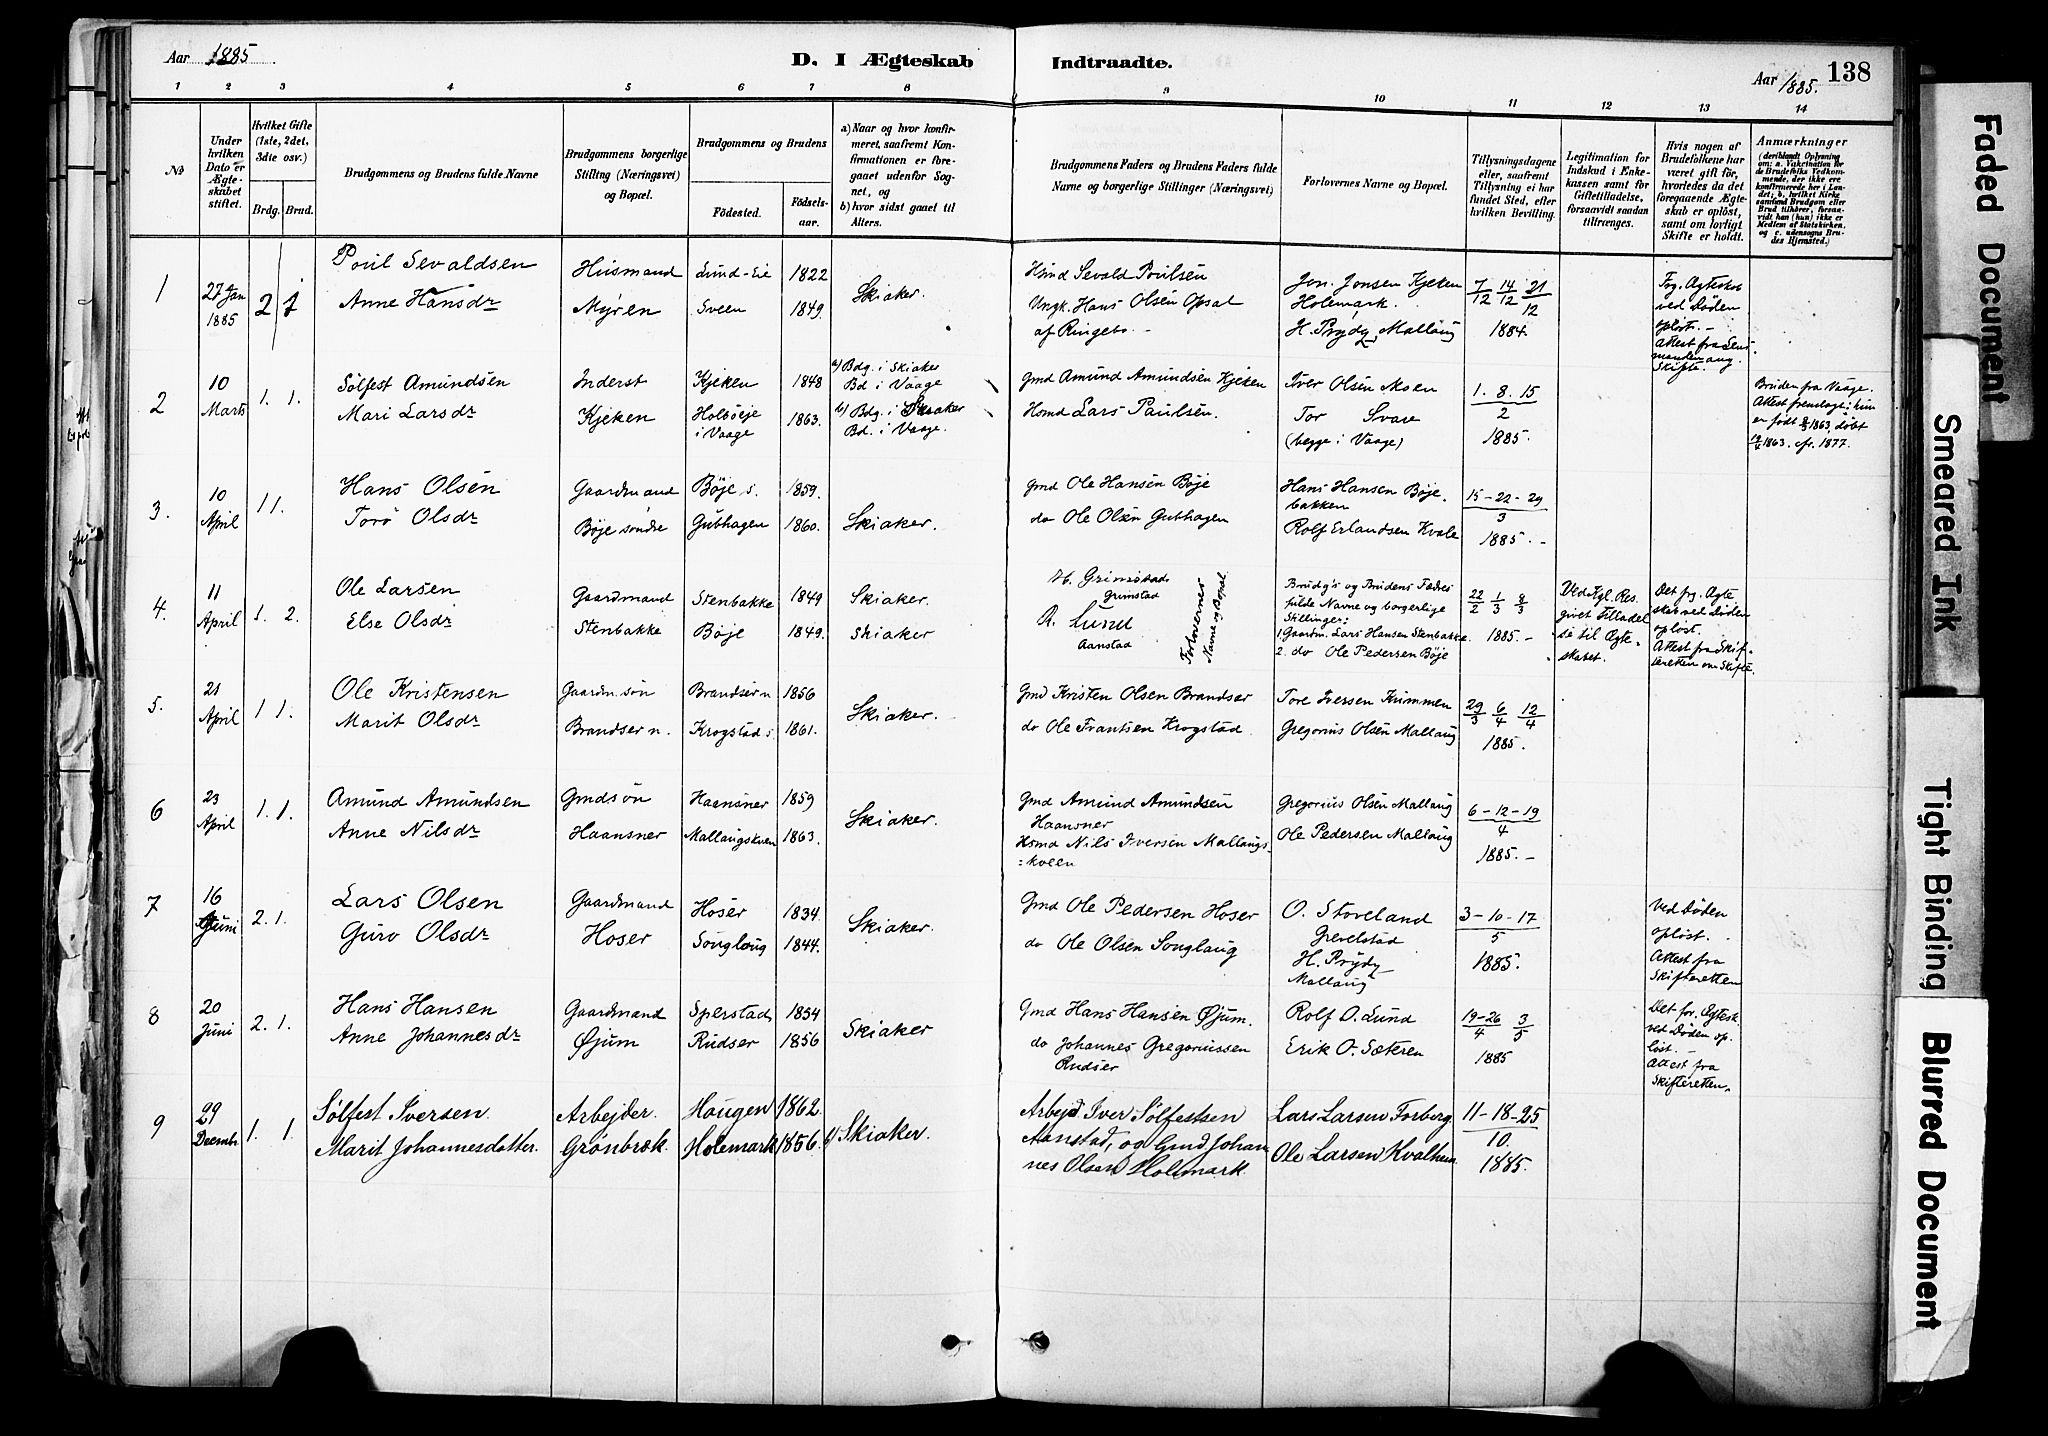 Aar 1885
D. I Ægteskab
Indtraadte.
Aar 1885.
138
1 2 3 4 5 6 7 8 9 10 11 12 13 14
No
Under hvilken Dato er Ægteskabet stiftet.
Hvilket Gifte (1ste, 2det, 3die osv.)
Brdg. Brud.
Brudgommens og Brudens fulde Navne
Brudgommens borgerlige Stilling (Næringsvei) og Bopæl.
Brudgommens og Brudens
Födested.
Födselsaar.
a) Naar og hvor konfirmeret, saafremt Konfirmationen er foregaaet udenfor Sognet, og
b) hvor sidst gaaet til Alters.
Brudgommens Faders og Brudens Faders fulde Navne og borgerlige Stillinger (Næringsvei)
Forlovernes Navne og Bopæl.
Tillysningsdagene eller, saafremt Tillysning ei har fundet Sted, efter hvilken Bevilling.
Legitimation for Indskud i Enkekassen samt for Giftetilladelse, forsaavidt saadan tiltrænges.
Hvis nogen af Brudefolkene har været gift för, hvorledes da det foregaaende Ægteskab er oplöst, samt om lovligt Skifte er holdt.
Anmærkninger
(deriblandt Oplysning om: a. Vakcination for de Brudefolks Vedkommende, der ikke ere konfirmerede her i Landet; b. hvilket Kirkesamfund Brudgom eller Brud tilhörer, forsaavidt han (hun) ikke er Medlem af Statskirken, og c. udensogns Brudes Hjemsted.)
1
27de Jan 1885
2 1
Poul Sevaldsen
Anne Hansdr
Husmand
Myren
Lund-Eie
Sveen
1822
1849
Skiaker.
Hsmd Sevald Poulsen
Ungk. Hans Olsen Opsal
af Ringebo -
Jon Jonsen Kjeken
Holemark.
H. Prydz, Mallaug
7/12 14/12 21/12
1884.
Fog. Ægteskab
ved Døden
opløst. -
Attest fra Lensmanden ang. Skifte.
2
10 Marts
1. 1.
Sølfest Amundsen
Mari Larsdr
Inderst
Kjeken
Kjeken
Holbøeje
i Vaage
1848
1863.
a) Bdg. i Skiaker
Bd i Vaage
b) Bdg. i Skiaker
Bd. i Vaage.
Gmd Amund Amundsen Kjeken
Hsmd Lars Paulsen.
Iver Olsen Moen
Tor Svare
(begge i Vaage)
1. 8. 15
2
1885.
Bruden fra Vaage.
Attest fremlagt: hun
er født 1863, døbt
1863. cfr. 1877.
3.
10 April
1 1.
Hans Olsen
Torø Olsdr
Gaardmand
Bøje søndre
Bøje s.
Gubhagen
1859.
1860.
Skiaker.
Gmd Ole Hansen Bøje
do Ole Olsen Gubhagen
Hans Hansen Bøje.
bakken
Rolf Erlandsen Kvale
15-22-29
3
1885. -
4.
11 April
1. 2.
Ole Larsen
Else Olsdr
Gaardmand
Stenbakke
Stenbakke
Bøje
1849
1849.
Skiaker.
Skiaker
H. Grimstad
Grimstad
R. Lund
Aanstad
Forlovernes
Navne og Bopæl.
Brudg's og Brudens Fædres
fulde Navne og borgerlige
Stillinger:
1. Gaardm. Lars Hansen Stenbakke.
2. do Ole Pedersen Bøje
22/2 1/3 8/3
1885. -
Ved Kgl. Res.
givet Tilladelse til Ægteskabet.
Det fg. Ægteskab ved Døden
opløst.
Attest fra Skifteretten om Skifte.
5.
21 April
1 1.
Ole Kristensen
Marit Olsdr
Gaardm. søn
Brandser n.
Brandser n
Krogstad s.
1856
1861.
Skiaker.
Gmd Kristen Olsen Brandser
do Ole Frantsen Krogstad
Tore Iversen Krummen
Gregorius Olsen Mallaug
29/3 6/4 12/4
1885.
6
23 April
1. 1.
Amund Amundsen
Anne Nilsdr
Gmdsøn
Haansner
Haansner
Mallaugskveen
1859
1863.
Skiaker.
Gmd Amund Amundsen
Haansner
Hsmd Nils Iversen Mallaugs-
=kveen
Gregorius Olsen Mallaug
Ole Pedersen Mallaug
6-12-19
4
1885. -
7
16 Juni
2. 1.
Lars Olsen
Guro Olsdr
Gaardmand
Hoser
Hoser
Songlaug
1834
1844.
Skiaker.
Gmd Ole Pedersen Hoser
do Ole Olsen Songlaug
O. Storeland
Grevelstad
H. Prydz
Mallaug
3-10-17
5
1885.
Ved Døden
opløst.
Attest fra
Skifteretten
8
20 Juni
2. 1.
Hans Hansen
Anne Johannesdr
Gaardmand
Øjum
Sperstad
Rudser
1834
1856
Skiaker
Gmd Hans Hansen Øjum.
do Johannes Gregoriussen
Rudser
Rolf O. Lund
Erik O. Sætren
19-26/4 3/5
1885
Det for. Ægtesk.
ved Døden opløst. -
Attest fra
Skifteretten.
9
29 Decembr
1. 1.
Sølfest Iversen.
Marit Johannesdatter.
Arbejder.
Grønbræk.
Haugen
Holemark
1862.
1856.
b) Skiaker.
Arbejd Iver Sølfestsen
Aanstad, og Gmd Johannes Olsen Holemark.
Lars Larsen Forberg.
Ole Larsen Kvalhem
11-18-25
10.
1885.
Faded Document
Smeared Ink
Tight Binding
Blurred Document